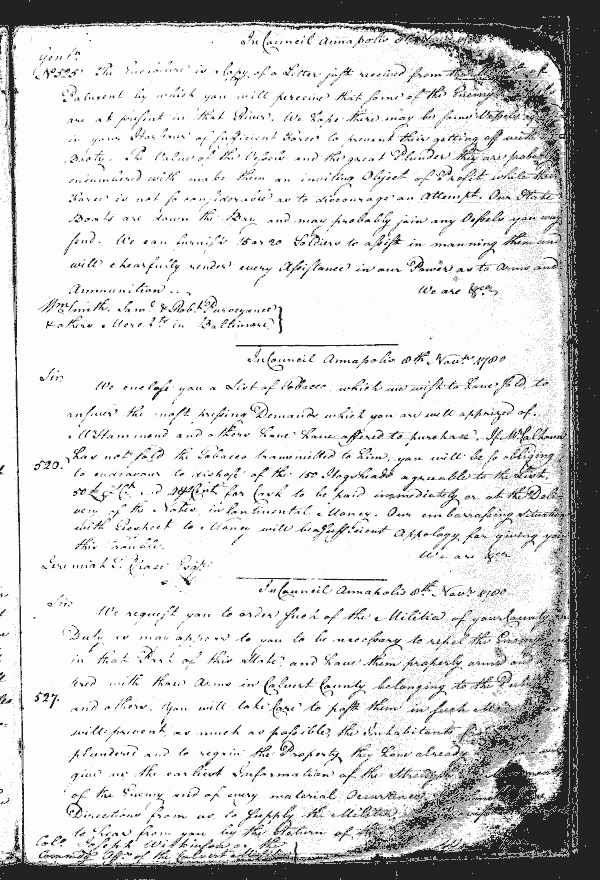 In Council Annapolis 8th
Gentn
No 525 The Enclosure is a Copy of a Letter just received from the
Patuxent by which you will perceive that some of the Enemy
are at present in that River. We hope there may be some Vessels
in your Harbour of sufficient Force to prevent their getting off with
Booty. The Value of the Vessels and the great Plunder they are probably
encumbered with make them an inviting Object of Profit while their
Force is not so considerable as to discourage an Attempt. Our State
Boats are down the Bay and may probably join any Vessels you may
send. We can furnish 15 or 20 Soldiers to assist in manning them and
will chearfully render every Assistance in our Power as to Arms and
Ammunition
We are &ca
Wm Smith, Saml & Robt Purveyance
& others Merchts in Baltimore
In Council Annapolis 8th Novr 1780
Sir
We enclose you a List of Tobacco, which we wish to have sold, to
answer the most pressing Demands which you are well apprized of.
Mr Hammond and others have have offered to purchase. If Mr Calhoun
has not sold the Tobacco transmitted to him, you will be so obliging
526. to endeavour to dispose of the 150 Hogsheads agreeable to the List,
for Cash to be paid immediately or at the Deli-
very of the Notes, in Continental Money. Our embarrassing Situation
with Respect to Money will be a sufficient Appology, for giving you
this trouble.
We are &ca
Jeremiah T. Chase Esqr
In Council Annapolis 8th Novr 1780
Sir
We request you to order such of the Militia of your County on
Duty as may appear to you to be necessary to repel the Enemy
in that Part of this State, and have them properly armed and
with those Arms in Calvert County belonging to the
527. and others. You will take Care to post them in such
will prevent, as much as possible, the Inhabitants
plundered and to regain the Property they have already
give us the earliest Information of the Strength
of the Enemy and of every material Occurrence
Directions from us to supply the Militia
to hear from you by the Return of the
Colo Joseph Wilkinson or the
Commdg Offr of the Calvert Militia